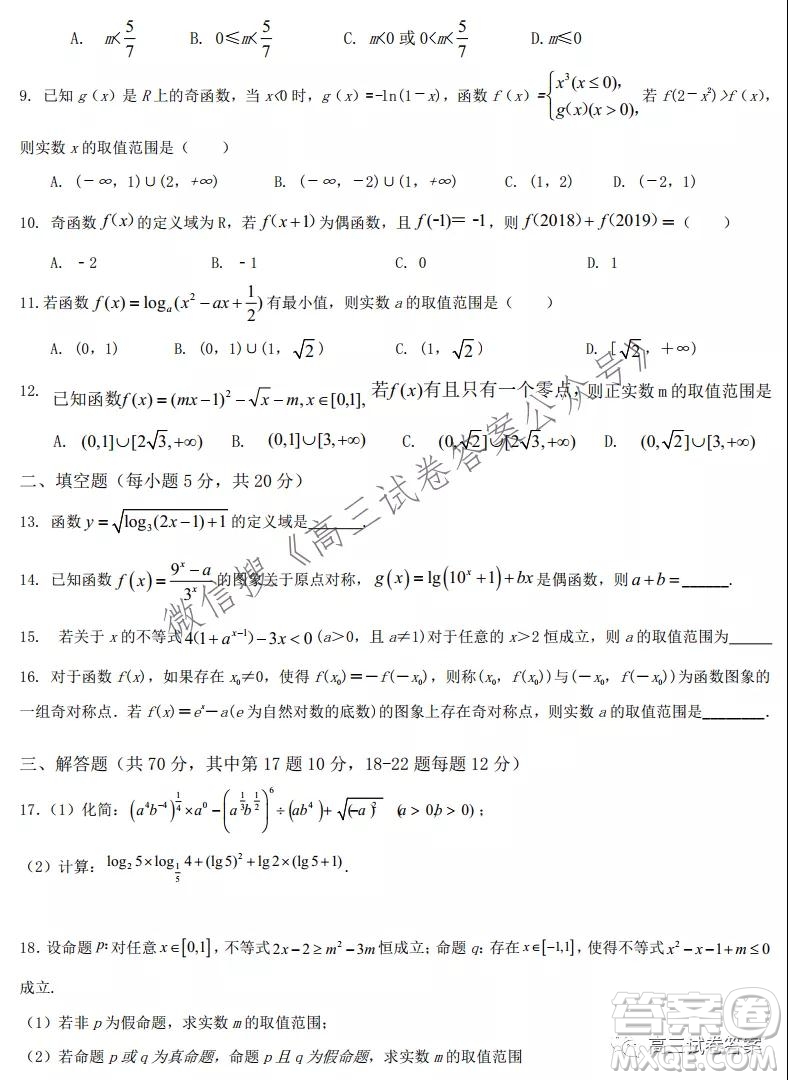 A. m<5/7 B. 0≤m<5/7 C. m<0 或 0<m<5/7 D.m≤0
9. 已知 g（x）是 R 上的奇函数，当 x<0 时，g（x）=-ln(1－x)，函数 f（x）={x³(x≤0), g(x)(x>0), 若 f(2－x²)>f（x），
则实数 x 的取值范围是（ ）
A. (－∞，1)∪(2，+∞) B. (－∞，－2)∪(1，+∞) C. (1，2) D. (－2，1)
10. 奇函数 f(x) 的定义域为 R，若 f(x+1) 为偶函数，且 f(-1)＝ -1，则 f(2018)+f(2019)＝（ ）
A. －2 B. －1 C. 0 D. 1
11.若函数 f(x)=logₐ(x²-ax+1/2) 有最小值，则实数 a 的取值范围是（ ）
A. (0，1) B. (0，1)∪(1，√2) C. (1，√2) D. [√2，＋∞)
12. 已知函数f(x)=(mx-1)²-√x-m,x∈[0,1],若f(x)有且只有一个零点，则正实数 m 的取值范围是
A. (0,1]∪[2√3,+∞) B. (0,1]∪[3,+∞) C. (0,√2]∪[2√3,+∞) D. (0,√2]∪[3,+∞)
二、填空题（每小题 5 分，共 20 分）
13. 函数 y=√(log₃(2x-1)+1) 的定义域是______.
14. 已知函数 f(x)=(9ˣ-a)/3ˣ 的图象关于原点对称，g(x)=lg(10ˣ+1)+bx 是偶函数，则 a+b=______.
15. 若关于 x 的不等式 4(1+aˣ⁻¹)-3x<0(a＞0，且 a≠1)对于任意的 x＞2 恒成立，则 a 的取值范围为______
16. 对于函数 f(x)，如果存在 x₀≠0，使得 f(x₀)＝－f(－x₀)，则称(x₀，f(x₀))与(－x₀，f(－x₀))为函数图象的
一组奇对称点．若 f(x)＝eˣ－a(e 为自然对数的底数)的图象上存在奇对称点，则实数 a 的取值范围是________．
三、解答题（共 70 分，其中第 17 题 10 分，18-22 题每题 12 分）
17.（1）化简：(a⁴b⁻⁴)^(1/4)×a⁰-(a^(1/3)b^(1/2))⁶÷(ab⁴)+√(-a)² (a>0,b>0)；
（2）计算：log₂5×log_(1/5)4+(lg5)²+lg2×(lg5+1)．
18.设命题 p：对任意 x∈[0,1]，不等式 2x-2≥m²-3m 恒成立；命题 q：存在 x∈[-1,1]，使得不等式 x²-x-1+m≤0
成立.
（1）若非 p 为假命题，求实数 m 的取值范围；
（2）若命题 p 或 q 为真命题，命题 p 且 q 为假命题，求实数 m 的取值范围
微信搜《高三试卷答案公众号》
答案圈
高三试卷答案